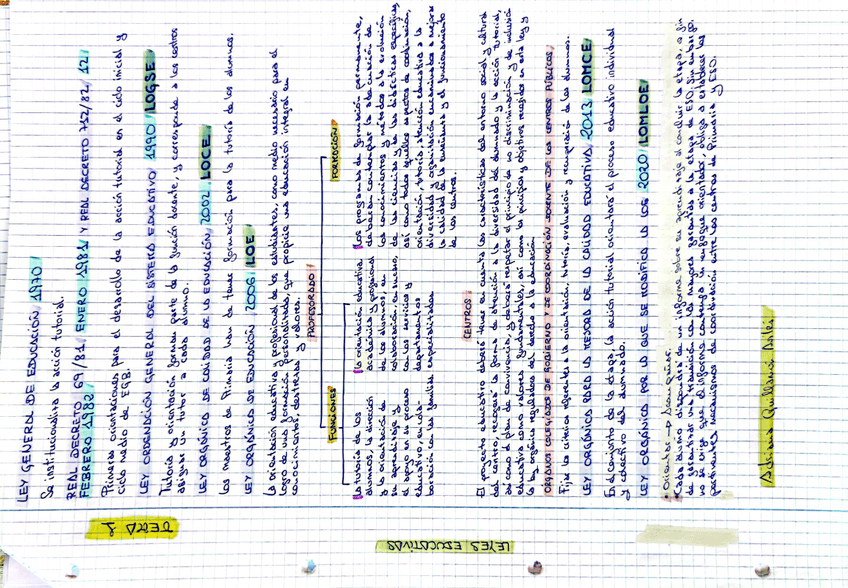 TEMA 2
LEYES EDUCATIVAS
LEY GENERAL DE EDUCACIÓN 1970
Se institucionaliza la acción tutorial.
REAL DECRETO 69/81, ENERO 1981 Y REAL DECRETO 712/82, 12
FEBRERO 1982
Primeras orientaciones para el desarrollo de la acción tutorial en el ciclo inicial y
ciclo medio de EGB.
LEY ORDENACIÓN GENERAL DEL SISTEMA EDUCATIVO 1990 LOGSE
Tutoría y orientación forman parte de la función docente, y corresponde a los centros
asignar un tutor a cada alumno.
LEY ORGÁNICA DE CALIDAD DE LA EDUCACIÓN 2002 LOCE
Los maestros de Primaria han de tener formación para la tutoría de los alumnos.
LEY ORGÁNICA DE EDUCACIÓN 2006 LOE
La orientación educativa y profesional de los estudiantes, como medio necesario para el
logro de una formación personalizada, que propicie una educación integral en
conocimientos, destrezas y valores.
PROFESORADO
FUNCIONES
La tutoría de los
alumnos, la dirección
y la orientación de
su aprendizaje y
el apoyo en su proceso
educativo, en
colaboración con las familias
La orientación educativa,
académica y profesional
de los alumnos, en
colaboración, en su caso,
con los servicios y
departamentos
especializados.
FORMACIÓN
Los programas de formación permanente,
deberán contemplar la adecuación de
los conocimientos y métodos a la evolución
de las ciencias y de las didácticas específicas,
así como todos aquellos aspectos de coordinación,
orientación, tutoría, atención educativa a la
diversidad y organización encaminados a mejorar
la calidad de la enseñanza y el funcionamiento
de los centros.
CENTROS
El proyecto educativo deberá tener en cuenta las características del entorno social y cultural
del centro, recogerá la forma de atención a la diversidad del alumnado y la acción tutorial,
así como el plan de convivencia, y deberá respetar el principio de no discriminación y de inclusión
educativa como valores fundamentales, así como los principios y objetivos recogidos en esta ley y
la ley orgánica reguladora del derecho a la educación.
ÓRGANOS COLEGIADOS DE GOBIERNO Y DE COORDINACIÓN DOCENTE DE LOS CENTROS PÚBLICOS
Fijar los criterios referentes a la orientación, tutoría, evaluación y recuperación de los alumnos.
LEY ORGÁNICA PARA LA MEJORA DE LA CALIDAD EDUCATIVA, 2013 LOMCE
En el conjunto de la etapa, la acción tutorial orientará el proceso educativo individual
y colectivo del alumnado.
LEY ORGÁNICA POR LA QUE SE MODIFICA LA LOE 2020 LOMLOE
Orientar →
Cada alumno dispondrá de un informe sobre su aprendizaje al concluir la etapa, a fin
de garantizar una transición con las mayores garantías a la etapa de ESO. Sin embargo,
no se exige que el informe contenga un enfoque orientador, obliga a establecer los
pertinentes mecanismos de coordinación entre los centros de Primaria y ESO.